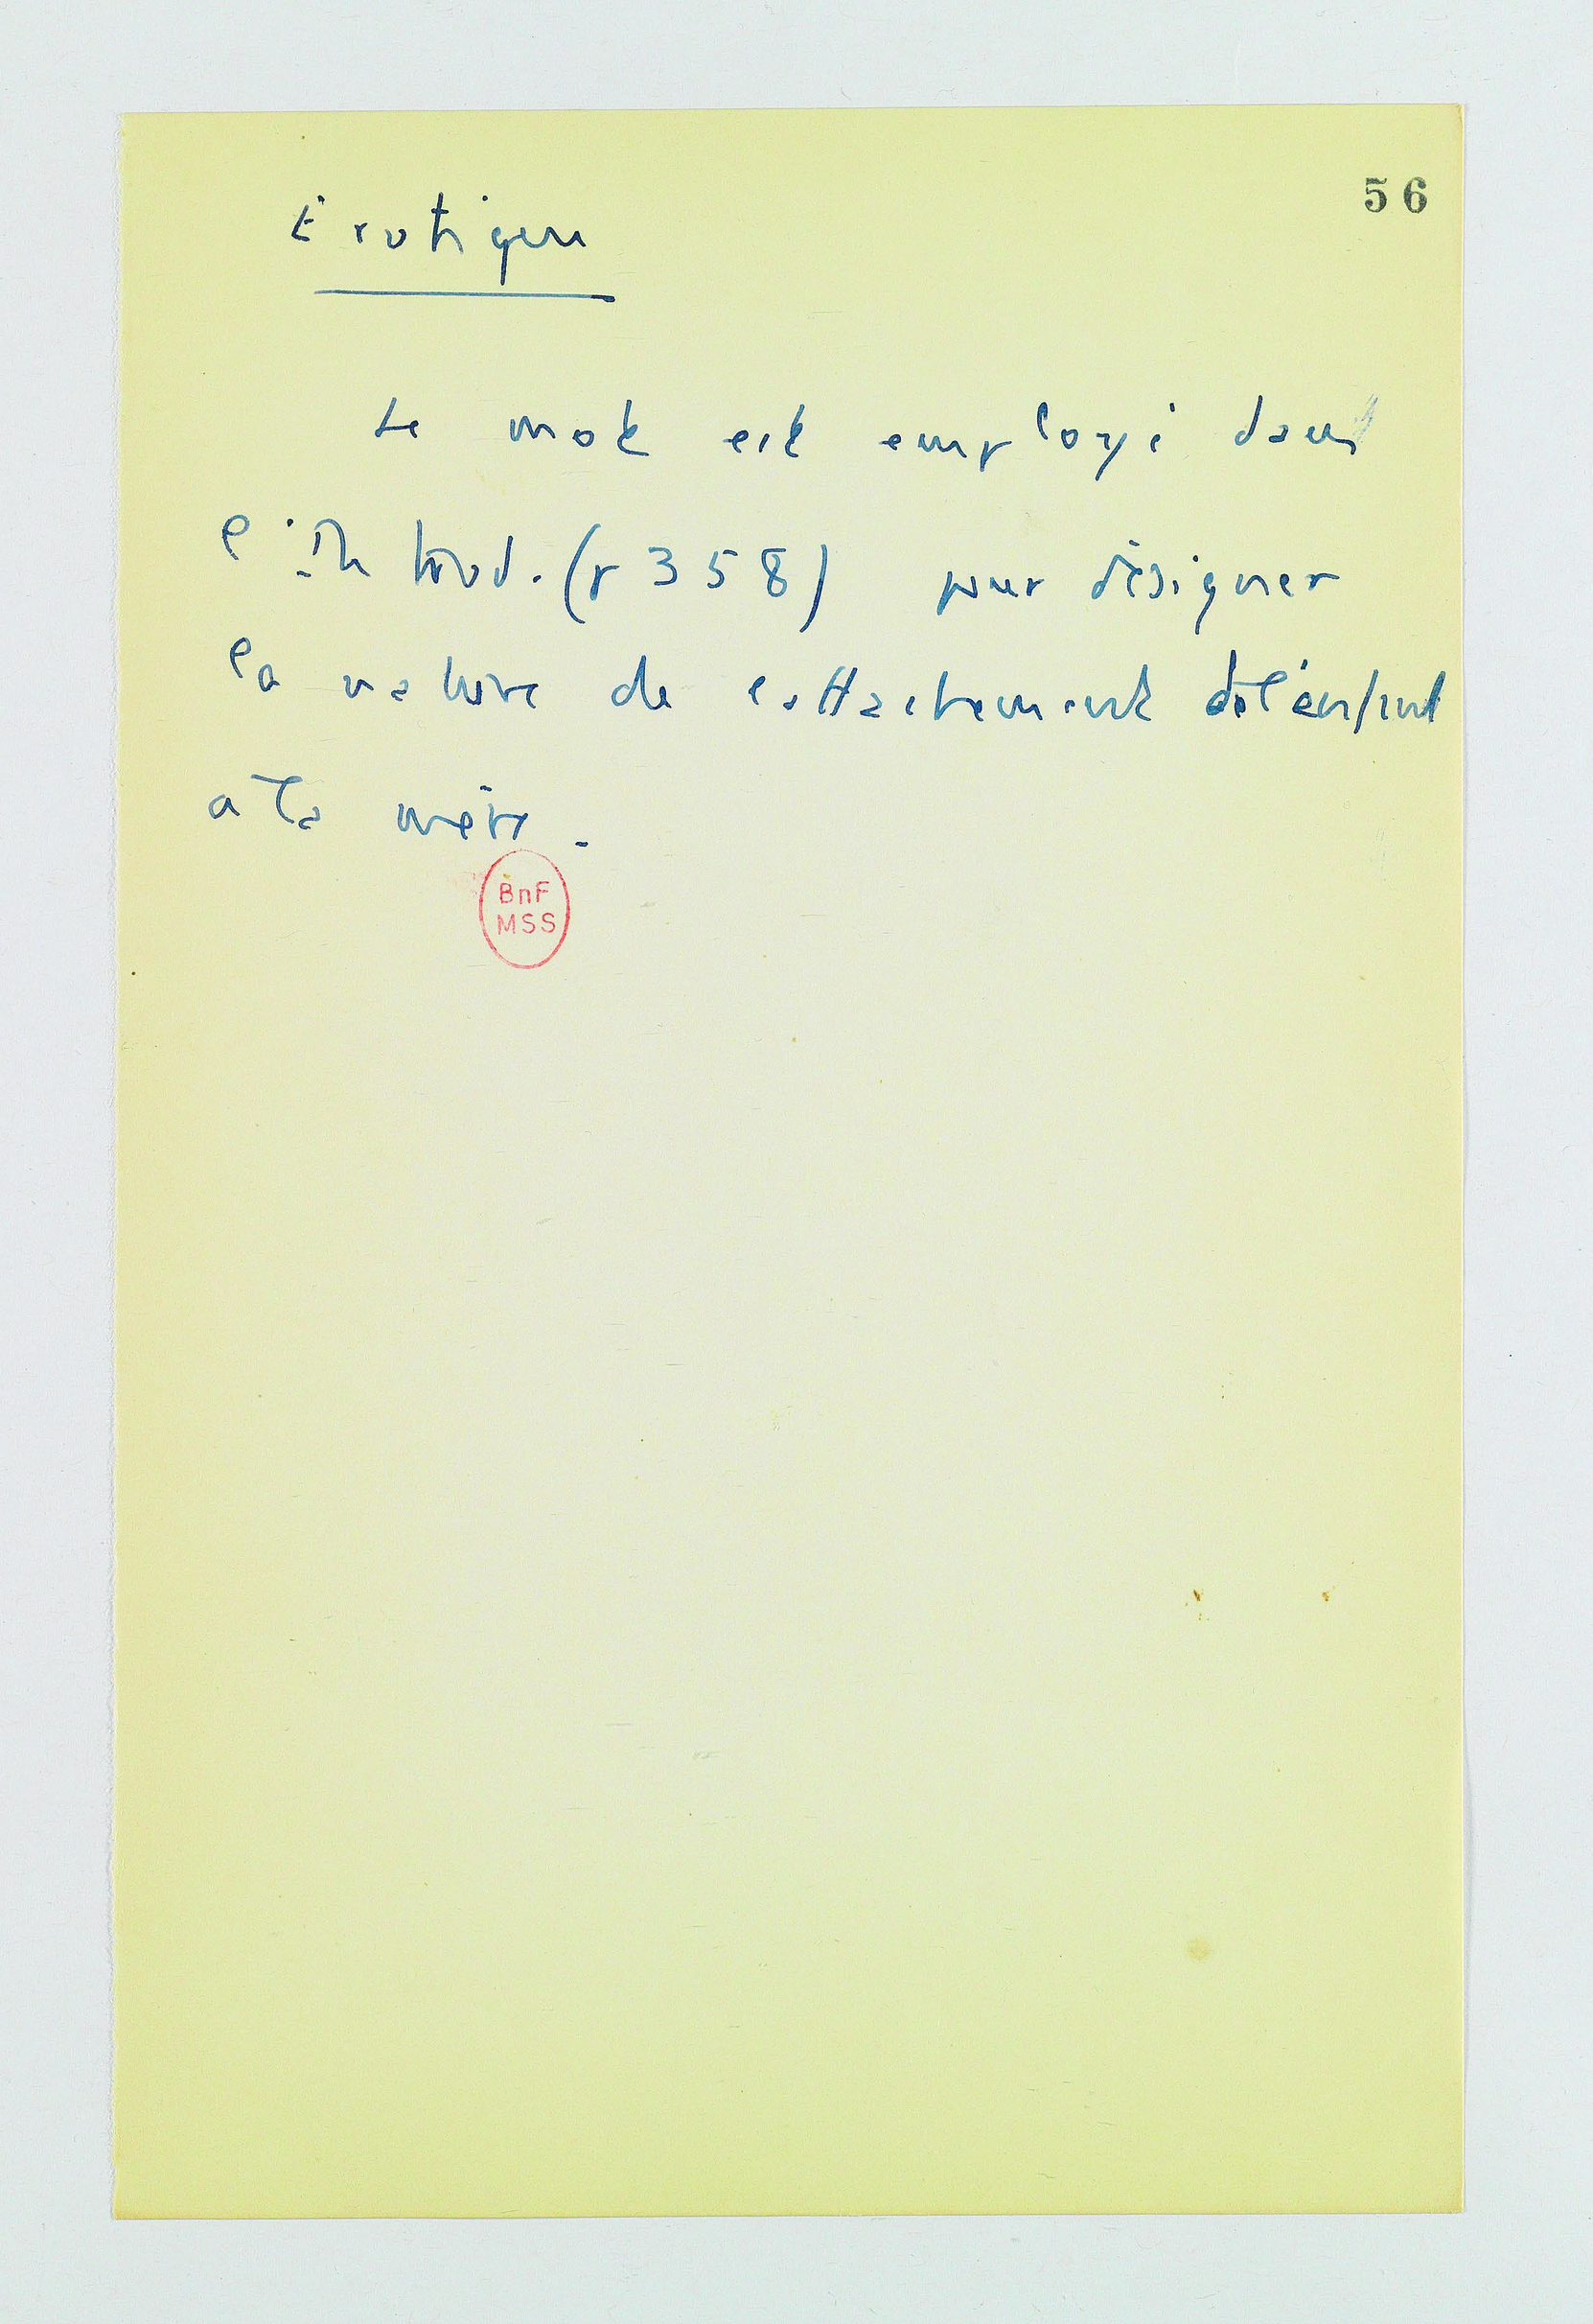 56
Erotique
Le mot est employé dans
l'Introd. (p 358) pour désigner
la nature de l'attachement de l'enfant
à la mère.
BnF
MSS